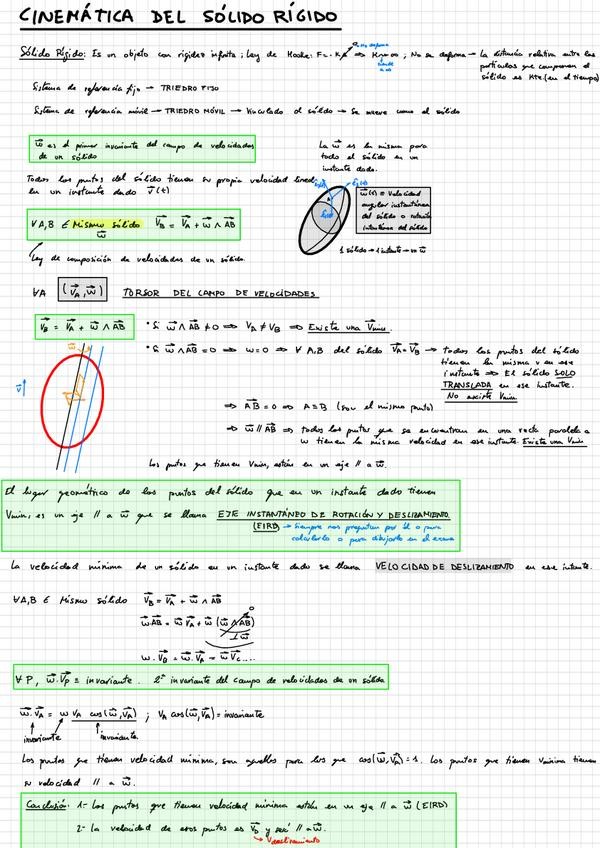 CINEMÁTICA DEL SÓLIDO RÍGIDO
Sólido Rígido: Es un objeto con rigidez infinita; Ley de Hooke: F = -K·x → K = ∞; No se deforma → La distancia relativa entre las
No deforma
partículas que componen el
sólido es Kte. (en el tiempo)
Sistema de referencia fijo → TRIEDRO FIJO
Sistema de referencia móvil → TRIEDRO MÓVIL → Vinculado al sólido → Se mueve como el sólido
w⃗ es el primer invariante del campo de velocidades
de un sólido
La w⃗ es la misma para
todo el sólido en un
instante dado.
Todos los puntos del sólido tienen su propia velocidad lineal
en un instante dado v⃗(t)
w⃗(t) = Velocidad
angular instantánea
del sólido o rotación
instantánea del sólido
∀A,B ∈ Mismo sólido V⃗B = V⃗A + w⃗ ∧ AB⃗
w⃗
1 sólido → 1 instante → un w⃗
Ley de composición de velocidades de un sólido.
∀A (V⃗A, w⃗) TORSOR DEL CAMPO DE VELOCIDADES
V⃗B = V⃗A + w⃗ ∧ AB⃗
• Si w⃗ ∧ AB⃗ ≠ 0 ⇒ VA ≠ VB ⇒ Existe una Vmin.
• Si w⃗ ∧ AB⃗ = 0 ⇒ w = 0 ⇒ ∀ A,B del sólido V⃗A = V⃗B → todos los puntos del sólido
tienen la misma v en ese
instante ⇒ El sólido SOLO
TRANSLADA en ese instante.
No existe Vmin
⇒ AB⃗ = 0 ⇒ A ≡ B (son el mismo punto)
⇒ w⃗ // AB⃗ ⇒ todos los puntos que se encuentran en una recta paralela a
w tienen la misma velocidad en ese instante. Existe una Vmin
v⃗
w⃗
Los puntos que tienen Vmin, están en un eje // a w⃗.
El lugar geométrico de los puntos del sólido que en un instante dado tienen
Vmin, es un eje // a w⃗ que se llama EJE INSTANTÁNEO DE ROTACIÓN Y DESLIZAMIENTO
(EIRD) → Siempre nos preguntan por él o para
calcularlo o para dibujarlo en el examen
La velocidad mínima de un sólido en un instante dado se llama VELOCIDAD DE DESLIZAMIENTO en ese instante.
∀A,B ∈ Mismo sólido V⃗B = V⃗A + w⃗ ∧ AB⃗
w⃗·AB⃗ = w⃗·V⃗A + w⃗ (w⃗ ∧ AB⃗)
0
⊥ w⃗
w·V⃗B = w⃗·V⃗A = w⃗·V⃗C....
∀P, w⃗·V⃗P = invariante. 2º invariante del campo de velocidades de un sólido
w⃗·V⃗A = w VA cos(w⃗,V⃗A) ; VA cos(w⃗,V⃗A) = invariante
invariante invariante
Los puntos que tienen velocidad mínima, son aquellos para los que cos(w⃗,V⃗A) = 1. Los puntos que tienen Vmínima tienen
su velocidad // a w⃗.
Conclusión: 1- Los puntos que tienen velocidad mínima están en un eje // a w⃗ (EIRD)
2- la velocidad de esos puntos es V⃗D y será // a w⃗.
→ Vdeslizamiento